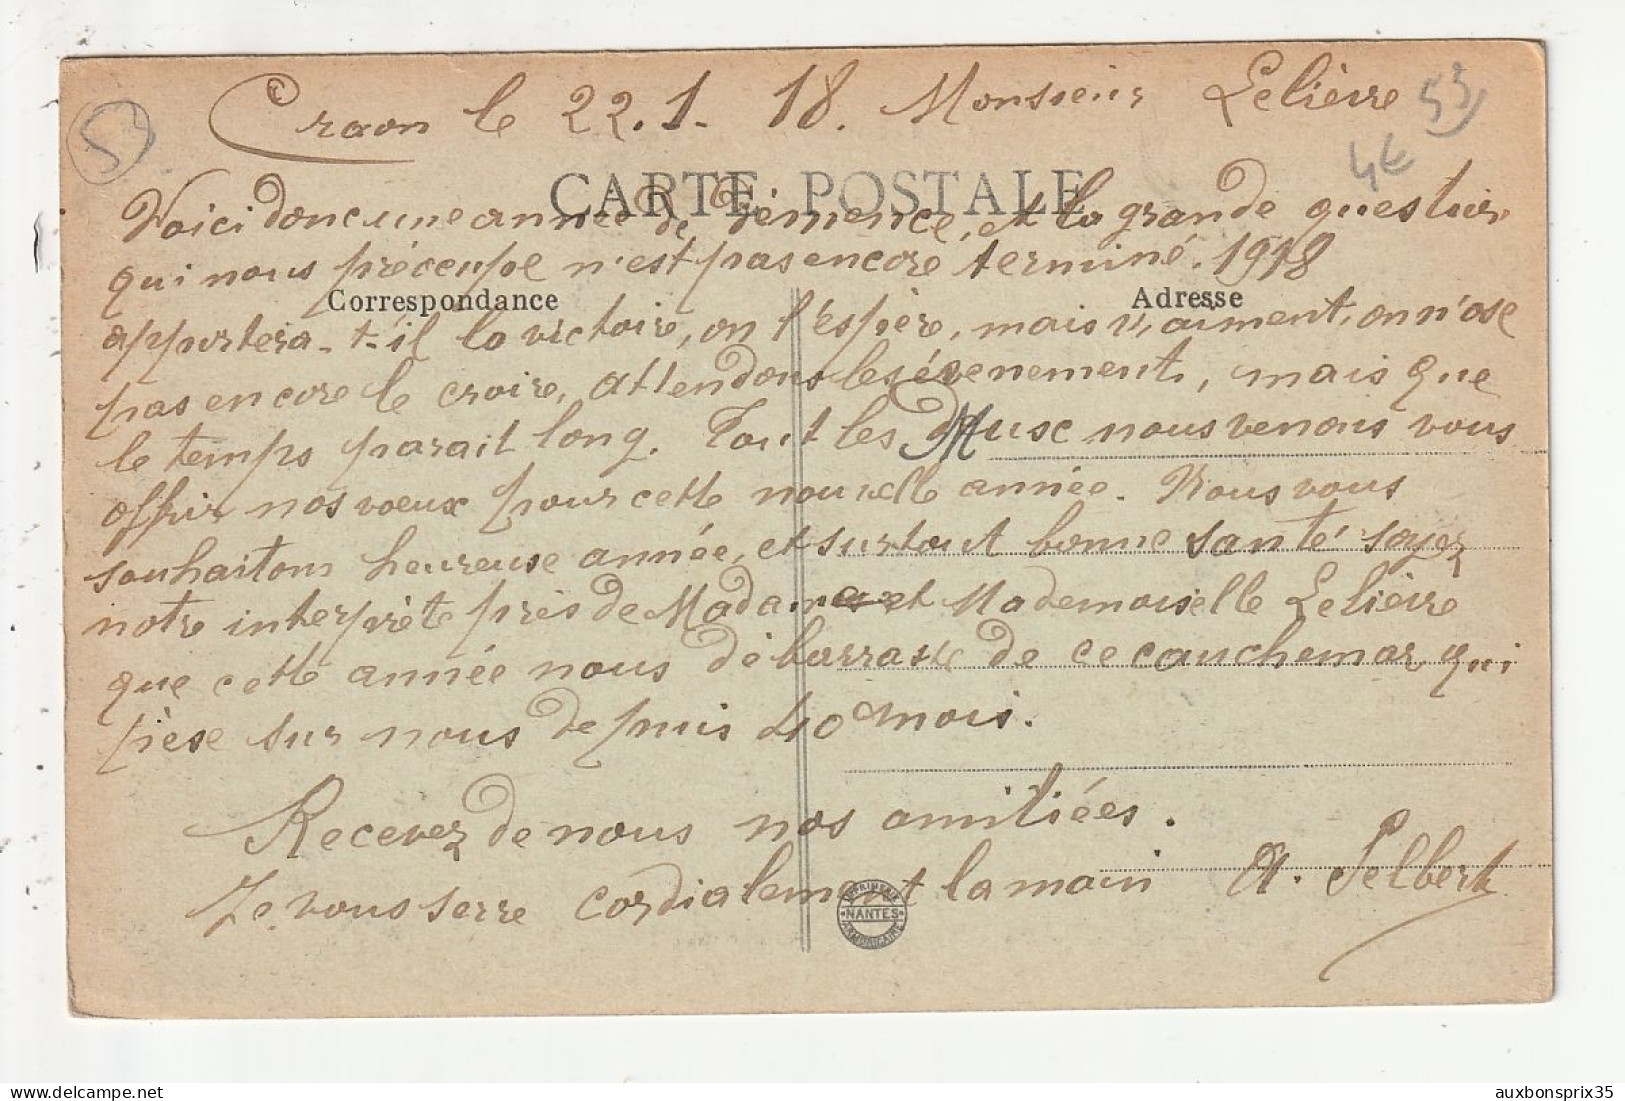 53
Craon le 22.1.18. Monsieur Lelièvre
53
4€
CARTE POSTALE
Voici donc une année de de et la grande question
qui nous préocupe n'est pas encore terminé. 1918
Correspondance
Adresse
apportera-t-il la victoire, on l'espère, mais vraiment, on n'ose
pas encore le croire, attendons les évenement, mais que
le temps parait long. Tout les nous venons vous
offrir nos voeux pour cette nouvelle année. Nous vous
souhaitons heureuse année, et surtout bonne santé soyez
notre interprète près de Madame et Mademoiselle Lelièvre
que cette année nous débarrasse de ce cauchemar qui
pèse sur nous depuis 40 mois.
Recevez de nous nos amitiées.
Je vous serre cordialement la main A. Pelbert
IMPRIMERIE
NANTES
ARMORICAINE
auxbonsprix35